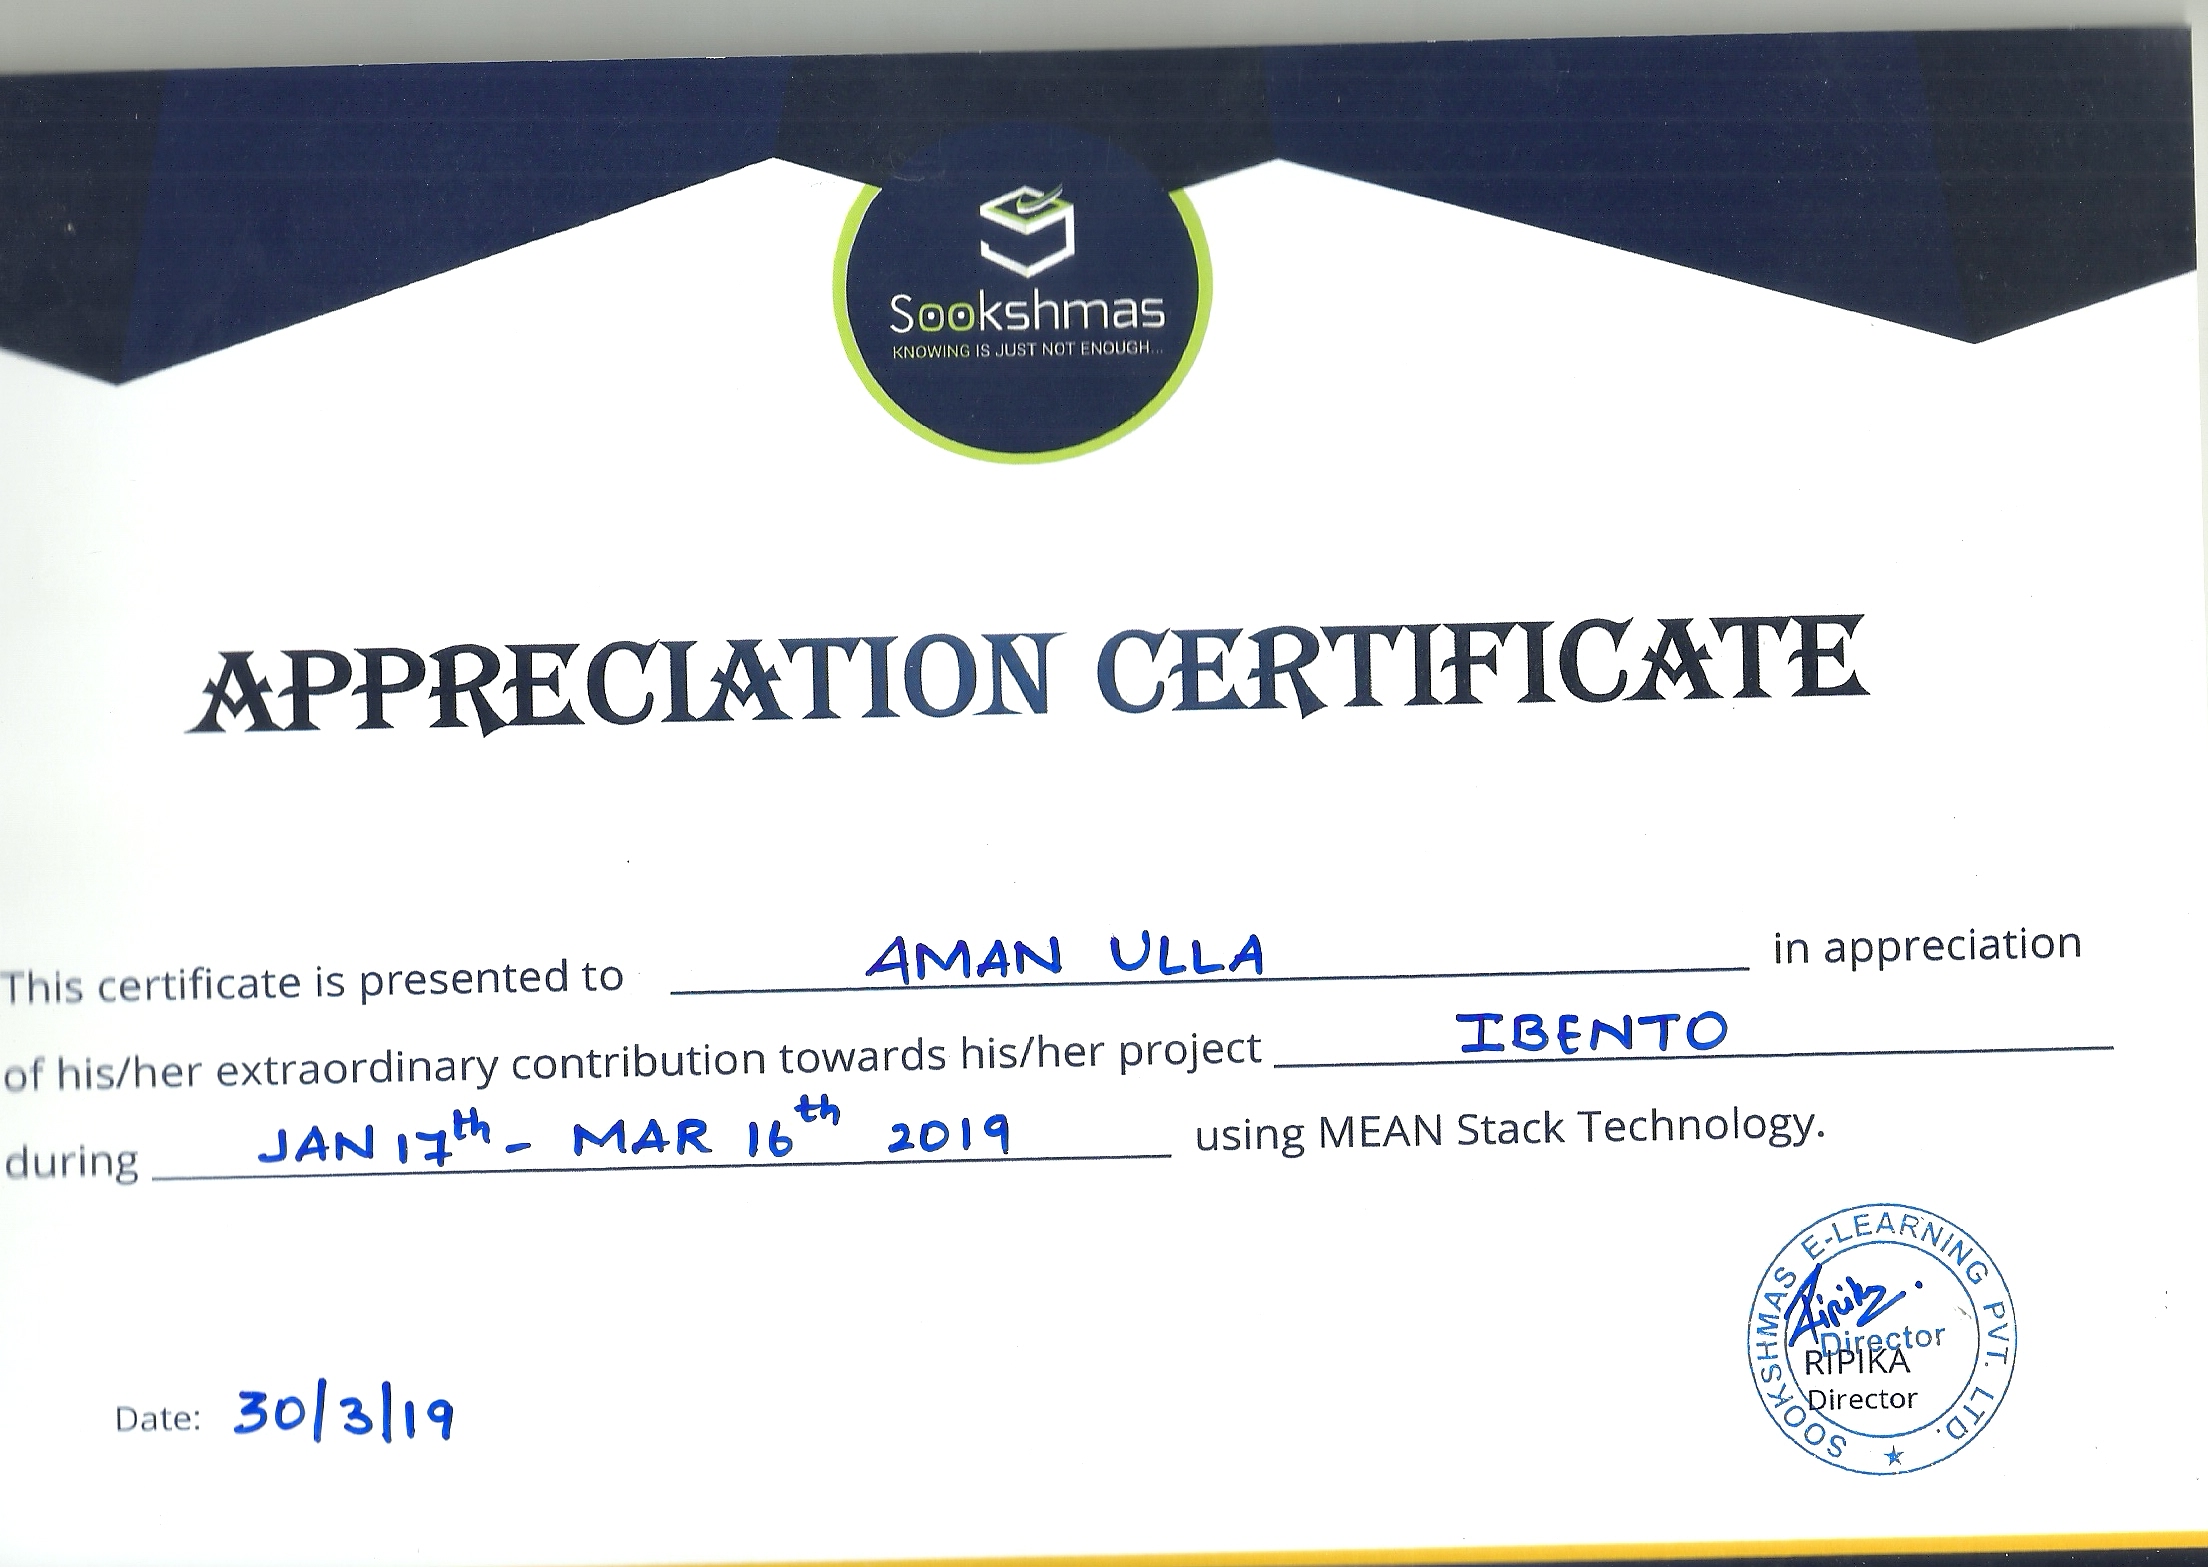 Sookshmas
KNOWING IS JUST NOT ENOUGH...
APPRECIATION CERTIFICATE
This certificate is presented to AMAN ULLA in appreciation
of his/her extraordinary contribution towards his/her project IBENTO
during JAN 17th - MAR 16th 2019 using MEAN Stack Technology.
SOOKSHMAS E-LEARNING PVT. LTD.
Director
RIPIKA
Director
Date: 30/3/19